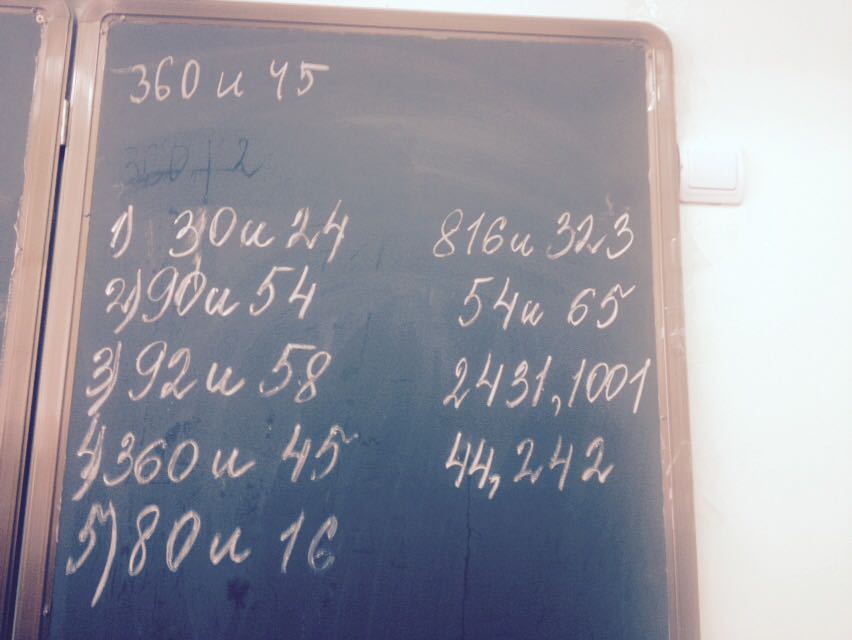 360 и 45
360 | 2
1) 30 и 24
2) 90 и 54
3) 92 и 58
4) 360 и 45
5) 80 и 16
816 и 323
54 и 65
2431, 1001
44, 242